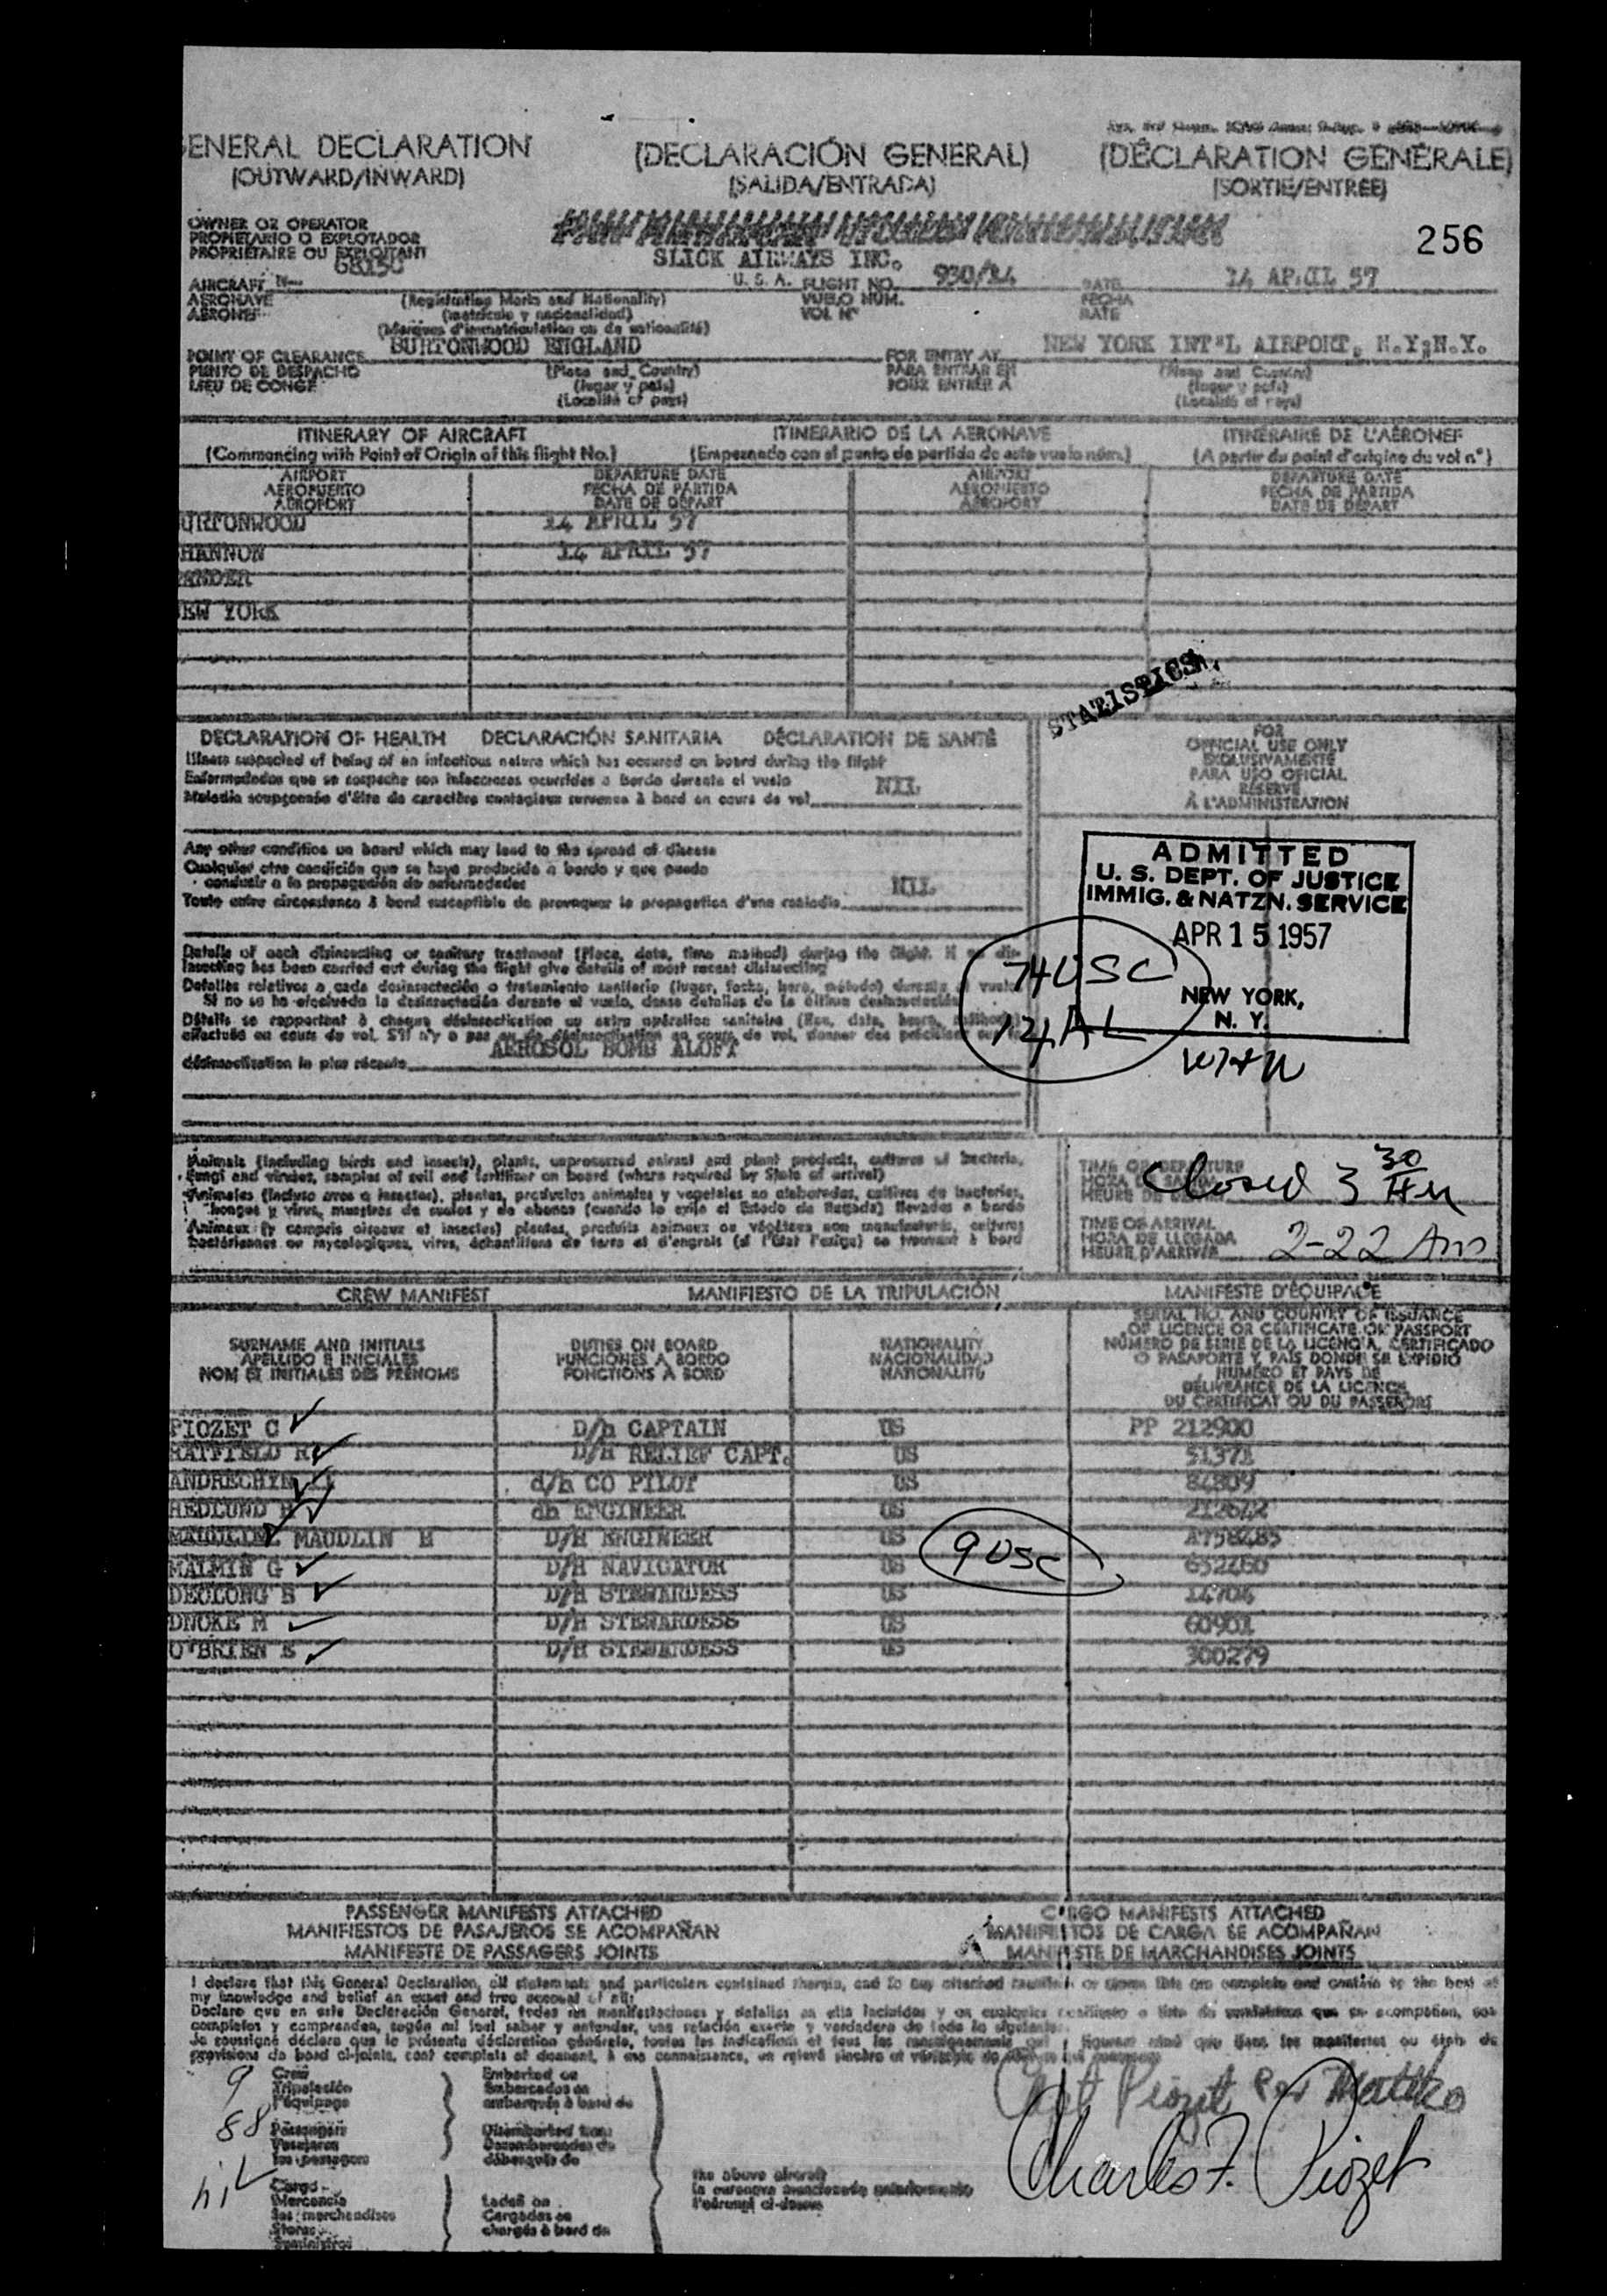 ENERAL DECLARATION
(OUTWARD/INWARD)
(DECLARACIÓN GENERAL)
(SALIDA/ENTRADA)
(DÉCLARATION GÉNÉRALE)
(SORTIE/ENTREE)
256
OWNER OR OPERATOR
PROPIETARIO O EXPLOTADOR
PROPRIETAIRE OU EXPLOITANT
SLICK AIRWAYS INC.
AIRCRAFT N 6815C U. S. A. FLIGHT NO. 930/14 DATE 14 APRIL 57
AERONAVE (Registration Marks and Nationality) VUELO NUM. FECHA
AERONEF (matrícula y nacionalidad) VOL N° DATE
(Marques d'immatriculation ou de nationalité)
POINT OF CLEARANCE BURTONWOOD ENGLAND FOR ENTRY AT NEW YORK INT'L AIRPORT, N.Y;N.Y.
PUNTO DE DESPACHO (Place and Country) PARA ENTRAR EN (Place and Country)
LIEU DE CONGÉ (lugar y país) POUR ENTRER A (lugar y país)
(Localité et pays) (Localité et pays)
ITINERARY OF AIRCRAFT ITINERARIO DE LA AERONAVE ITINÉRAIRE DE L'AÉRONEF
(Commencing with Point of Origin of this flight No.) (Empezando con el punto de partida de este vuelo núm.) (A partir du point d'origine du vol n°)
AIRPORT DEPARTURE DATE AIRPORT DEPARTURE DATE
AEROPUERTO FECHA DE PARTIDA AEROPUERTO FECHA DE PARTIDA
AÉROPORT DATE DE DÉPART AÉROPORT DATE DE DÉPART
URTONWOOD 14 APRIL 57
HANNON 14 APRIL 57
ANDER
EW YORK
STATISTICS
DECLARATION OF HEALTH DECLARACIÓN SANITARIA DÉCLARATION DE SANTÉ
Illness suspected of being of an infectious nature which has occured on board during the flight
Enfermedades que se sospeche son infecciosas ocurridas a bordo durante el vuelo NIL
Maladie soupçonnée d'être de caractère contagieux survenue à bord en cours de vol
FOR
OFFICIAL USE ONLY
EXCLUSIVAMENTE
PARA USO OFICIAL
RÉSERVÉ
À L'ADMINISTRATION
Any other condition on board which may lead to the spread of disease
Cualquier otra condición que se haya producido a bordo y que pueda
conducir a la propagación de enfermedades NIL
Toute autre circonstance à bord susceptible de provoquer la propagation d'une maladie
ADMITTED
U. S. DEPT. OF JUSTICE
IMMIG. & NATZN. SERVICE
APR 15 1957
NEW YORK,
N. Y.
74 USC
14 AL
Details of each disinsecting or sanitary treatment (Place, date, time method) during the flight. If no dis-
insecting has been carried out during the flight give details of most recent disinsecting
Detalles relativos a cada desinsectación o tratamiento sanitario (lugar, fecha, hora, método) durante el vuelo
Si no se ha efectuado la desinsectación durante el vuelo, dense detalles de la última desinsectación
AEROSOL BOMB ALOFT
désinsectisation la plus récente
Animals (including birds and insects), plants, unprocessed animal and plant products, cultures of bacteria,
fungi and viruses, samples of soil and fertilizer on board (where required by State of arrival)
Animales (incluso aves e insectos), plantas, productos animales y vegetales no elaborados, cultivos de bacterias,
hongos y virus, muestras de suelos y de abonos (cuando lo exija el Estado de llegada) llevados a bordo
Animaux (y compris oiseaux et insectes) plantes, produits animaux ou végétaux non manufacturés, cultures
bactériennes ou mycologiques, virus, échantillons de terre et d'engrais (si l'État l'exige) se trouvant à bord
TIME OF DEPARTURE
Closed 3 30
TIME OF ARRIVAL
HORA DE LLEGADA
HEURE D'ARRIVÉE 2-22 Am
CREW MANIFEST MANIFIESTO DE LA TRIPULACIÓN MANIFESTE D'ÉQUIPAGE
SURNAME AND INITIALS DUTIES ON BOARD NATIONALITY SERIAL NO. AND COUNTRY OF ISSUANCE
APELLIDO E INICIALES FUNCIONES A BORDO NACIONALIDAD OF LICENCE OR CERTIFICATE OR PASSPORT
NOM ET INITIALES DES PRÉNOMS FONCTIONS À BORD NATIONALITÉ NÚMERO DE SERIE DE LA LICENCIA, CERTIFICADO
O PASAPORTE Y PAÍS DONDE SE EXPIDIÓ
NUMÉRO ET PAYS DE
DÉLIVRANCE DE LA LICENCE
DU CERTIFICAT OU DU PASSEPORT
PIOZET C D/h CAPTAIN US PP 212900
HATFIELD R D/H RELIEF CAPT. US 51371
ANDRECHYN d/h CO PILOT US 84809
HEDLUND H dh ENGINEER US 212642
MAUDLIN H D/H ENGINEER US A758485
MALMIN G D/H NAVIGATOR US 652460
DEOLONG B D/H STEWARDESS US 14704
DNUKE M D/H STEWARDESS US 60901
O'BRIEN E D/H STEWARDESS US 300279
9 USC
PASSENGER MANIFESTS ATTACHED CARGO MANIFESTS ATTACHED
MANIFIESTOS DE PASAJEROS SE ACOMPAÑAN MANIFIESTOS DE CARGA SE ACOMPAÑAN
MANIFESTE DE PASSAGERS JOINTS MANIFESTE DE MARCHANDISES JOINTS
I declare that this General Declaration, all statements and particulars contained therein, and in any attached
my knowledge and belief an exact and true account of all:
Declaro que en esta Declaración General, todas las manifestaciones y detalles en ella incluidos y en cualquier
completos y comprenden, según mi leal saber y entender, una relación exacta y verdadera de todo lo siguiente:
Je soussigné déclare que la présente déclaration générale, toutes les indications et tous les renseignements
provisions de bord ci-joints, sont complets et donnent, à ma connaissance, un relevé sincère et véritable
9 Crew Embarked on
Tripulación Embarcados en
l'équipage embarqués à bord de
88 Passengers Disembarked from
Pasajeros Desembarcados de
les passagers débarqués de
nil Cargo Laden on the above aircraft
Mercancía Cargadas en la aeronave mencionada anteriormente
les marchandises chargés à bord de l'aéronef ci-dessus
Stores
Suministros
Capt Piozet Per
Charles F. Piozet